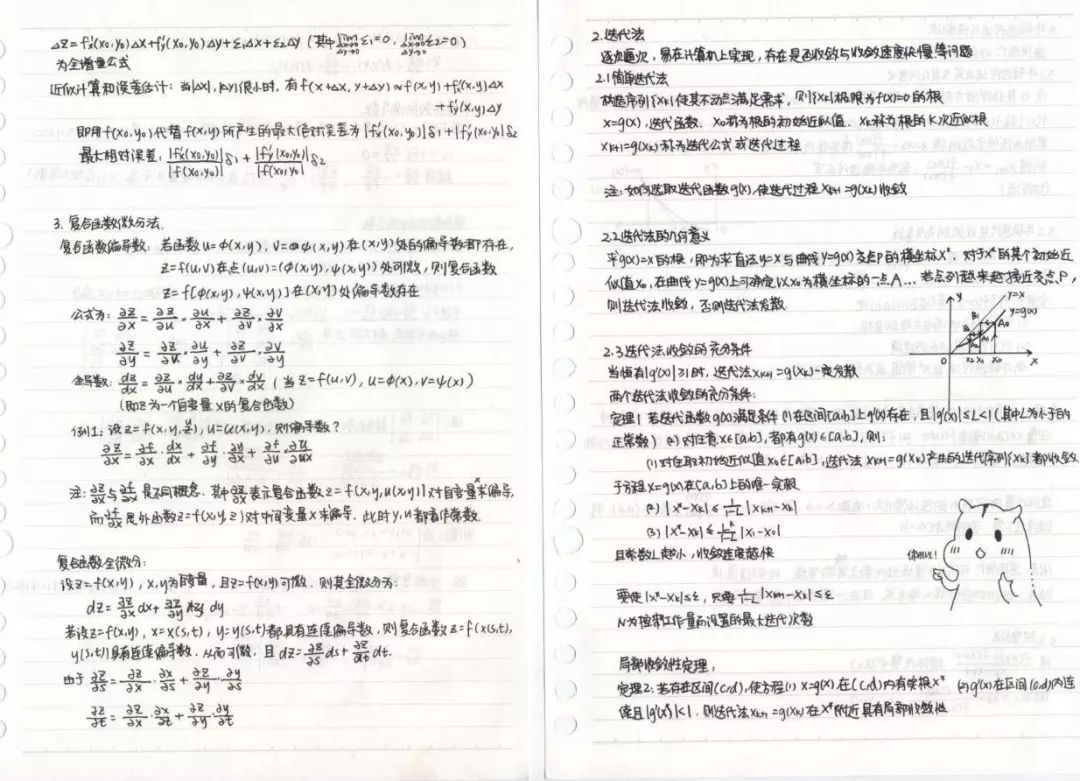 ΔZ=f'x(x₀,y₀)Δx+f'y(x₀,y₀)Δy+ε₁Δx+ε₂Δy (其中lim ε₁=0, lim ε₂=0) Δx→0 Δy→0
为全增量公式
近似计算和误差估计: 当|Δx|, |Δy|很小时, 有f(x+Δx, y+Δy)≈f(x,y)+f'x(x,y)Δx
+f'y(x,y)Δy
即用f(x₀,y₀)代替f(x,y)所产生的最大绝对误差为|f'x(x₀,y₀)|δ₁+|f'y(x₀,y₀)|δ₂
最大相对误差: |f'x(x₀,y₀)|/|f(x₀,y₀)| δ₁ + |f'y(x₀,y₀)|/|f(x₀,y₀)| δ₂
3. 复合函数微分法.
复合函数偏导数: 若函数u=φ(x,y), v=ψ(x,y)在(x,y)处的偏导数都存在,
z=f(u,v)在点(u,v)=(φ(x,y),ψ(x,y))处可微, 则复合函数
z=f[φ(x,y),ψ(x,y)]在(x,y)处偏导数存在
公式为: ∂z/∂x = ∂z/∂u · ∂u/∂x + ∂z/∂v · ∂v/∂x
∂z/∂y = ∂z/∂u · ∂u/∂y + ∂z/∂v · ∂v/∂y
全导数: dz/dx = ∂z/∂u · du/dx + ∂z/∂v · dv/dx (当z=f(u,v), u=φ(x), v=ψ(x))
(即z为一个自变量x的复合函数)
例1: 设z=f(x,y,u), u=u(x,y), 则偏导数?
∂z/∂x = ∂f/∂x · dx/dx + ∂f/∂y · ∂y/∂x + ∂f/∂u · ∂u/∂x
注: ∂z/∂x与∂f/∂x是不同概念. 其中∂z/∂x表示复合函数z=f(x,y,u(x,y))对自变量x求偏导,
而∂f/∂x是外函数z=f(x,y,z)对中间变量x求偏导, 此时y,u都看作常数.
复合函数全微分:
设z=f(x,y), x,y为自变量, 且z=f(x,y)可微, 则其全微分为:
dz = ∂z/∂x dx + ∂z/∂y dy
若设z=f(x,y), x=x(s,t), y=y(s,t)都具有连续偏导数, 则复合函数z=f(x(s,t),
y(s,t))具有连续偏导数, 从而可微, 且 dz=∂z/∂s ds+∂z/∂t dt.
由于 ∂z/∂s = ∂z/∂x · ∂x/∂s + ∂z/∂y · ∂y/∂s
∂z/∂t = ∂z/∂x · ∂x/∂t + ∂z/∂y · ∂y/∂t
2.迭代法
逐次逼近, 易在计算机上实现, 存在是否收敛与收敛速度快慢等问题
2.1简单迭代法
构造序列{xₖ}使其不动点满足需求, 则{xₖ}极限为f(x)=0的根
x=g(x), 迭代函数. x₀称为根的初始近似值. xₖ称为根的K次近似根
xₖ₊₁=g(xₖ)称为迭代公式或迭代过程
注: 如何选取迭代函数g(x), 使迭代过程xₖ₊₁=g(xₖ)收敛
2.2迭代法的几何意义
求g(x)=x的根, 即为求直线y=x与曲线y=g(x)交点P的横坐标x*. 对于x*的某个初始近
似值x₀, 在曲线y=g(x)上可确定以x₀为横坐标的一点A... 若点列越来越接近交点P,
则迭代法收敛, 否则迭代法发散.
y
y=x
y=g(x)
0
x₂ x₁ x₀
x
2.3迭代法收敛的充分条件
当恒有|g'(x)|≥1时, 迭代法xₖ₊₁=g(xₖ)一定发散
两个迭代法收敛的充分条件:
定理1 若迭代函数g(x)满足条件 (1)在区间[a,b]上g'(x)存在, 且|g'(x)|≤L<1(其中L为小于1的
正常数) (2)对任意x∈[a,b], 都有g(x)∈[a,b], 则:
(1)对任取初始近似值x₀∈[a,b], 迭代法xₖ₊₁=g(xₖ)产生的迭代序列{xₖ}都收敛
于方程x=g(x)在[a,b]上的唯一实根
(2) |x*-xₖ|≤ 1/(1-L) |xₖ₊₁-xₖ|
(3) |x*-xₖ|≤ Lᵏ/(1-L) |x₁-x₀|
且常数L越小, 收敛速度越快
要使|x*-xₖ|≤ε, 只要 1/(1-L) |xₖ₊₁-xₖ|≤ε
N为控制工作量而设置的最大迭代次数
局部收敛性定理:
定理2: 若存在区间(c,d), 使方程(1) x=g(x)在(c,d)内有实根x* (2)g'(x)在区间(c,d)内连
续且|g'(x)|<1, 则迭代法xₖ₊₁=g(xₖ)在x*附近具有局部收敛性